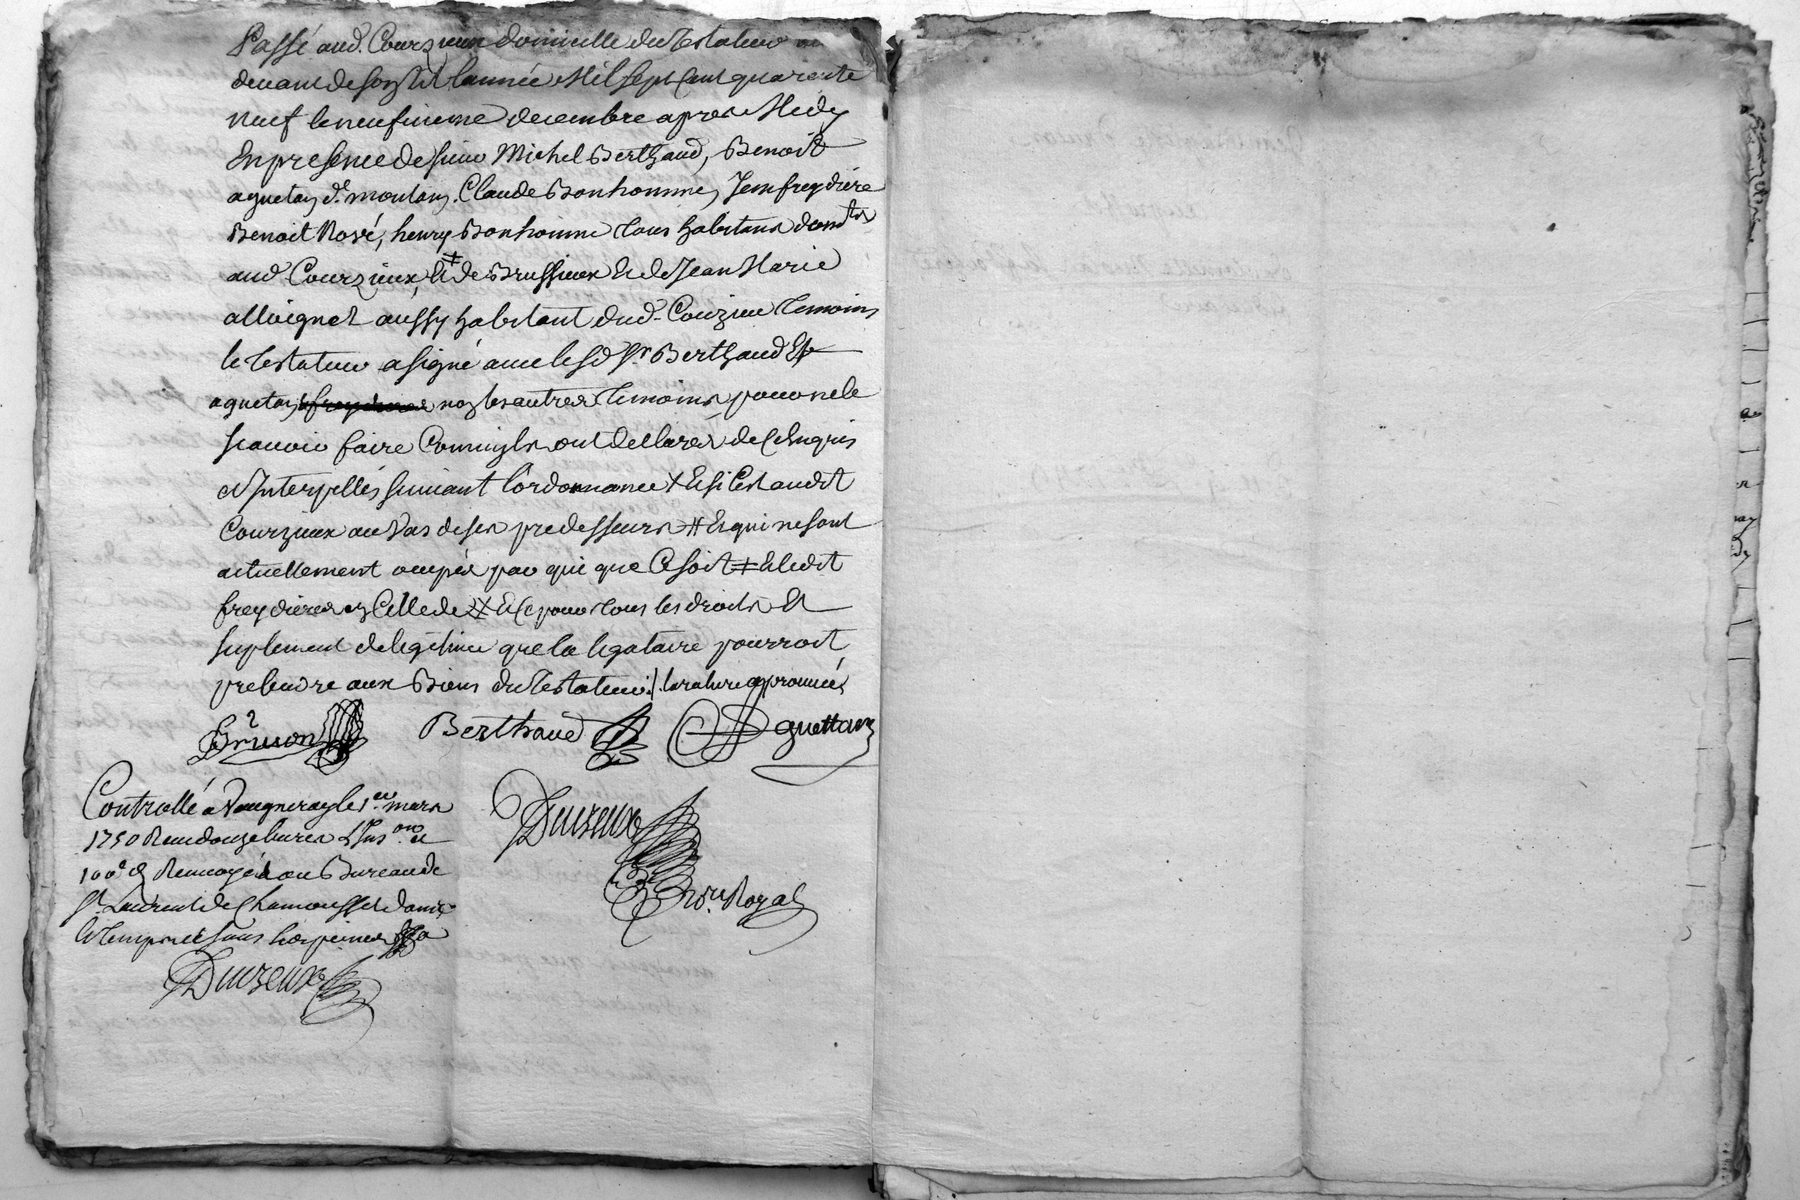 Passé aud. Courzieux domicille du Testateur
devant de son lit lannée Mil sept cent quarente
neuf le neufvieme decembre apres Midy
En presence de sieur Michel Berthaud, Benoit
aguetan d. montan. Claude Bonhomme, Jean freydiere
Benoit Rozé, henry Bonhomme tous habitans
aud. Courzieux, ‡ Et de Brussieux Et de Jean Marie
aussy habitant dud. Couzieu temoins
le testateur a signé avec led. Sr. Berthaud Et
aguetan non les autres temoins pour ne le
scavoir faire comm'ils ont dellarer de ce Enquis
et Interpellés suivant l'ordonnance + Et si Est audit
Courzieux au bas de ses predesseurs # Et qui ne sont
actuellement ocupés par qui que ce soit ‡ Et ledit
freydieres en celle de # Et ce pour tous les droits Et
suplement de legitime que la legataire pourroit
pretendre aux Biens du Testateur ./. la rature aprouvée
Brunon Berthaud Aguettan
Controllé à Vaugneray le 1er mars
1750 Reçu douze livres
100e d. Renvoyé au Bureau de
St. Laurent de Chamousset dans
le temps et sous les peines
Duizeux
nore. Royal
Duizeux